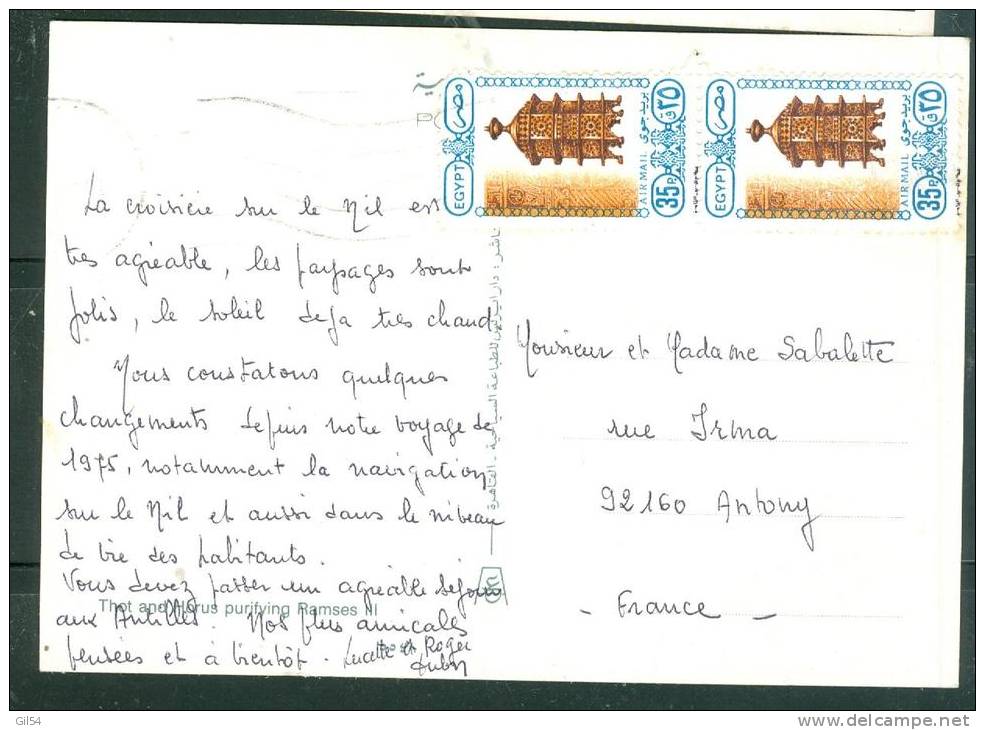 La croisière sur le Nil est
très agréable, les paysages sont
jolis, le soleil deja très chaud
Nous constatons quelques
changements depuis notre voyage de
1975, notamment la navigation
sur le Nil et aussi dans le niveau
de vie des habitants.
Vous devez passer un agréable séjour
aux Antilles. Nos plus amicales
pensées et à bientôt. Lucette et Roger
Thot and Horus purifying Ramses III
مصر
EGYPT
٣٥ ق
بريد جوى
AIR MAIL
35 P.
مصر
EGYPT
٣٥ ق
بريد جوى
AIR MAIL
35 P.
Monsieur et Madame Sabalette
rue Irma
92160 Antony
- France -
Gil54
www.delcampe.net